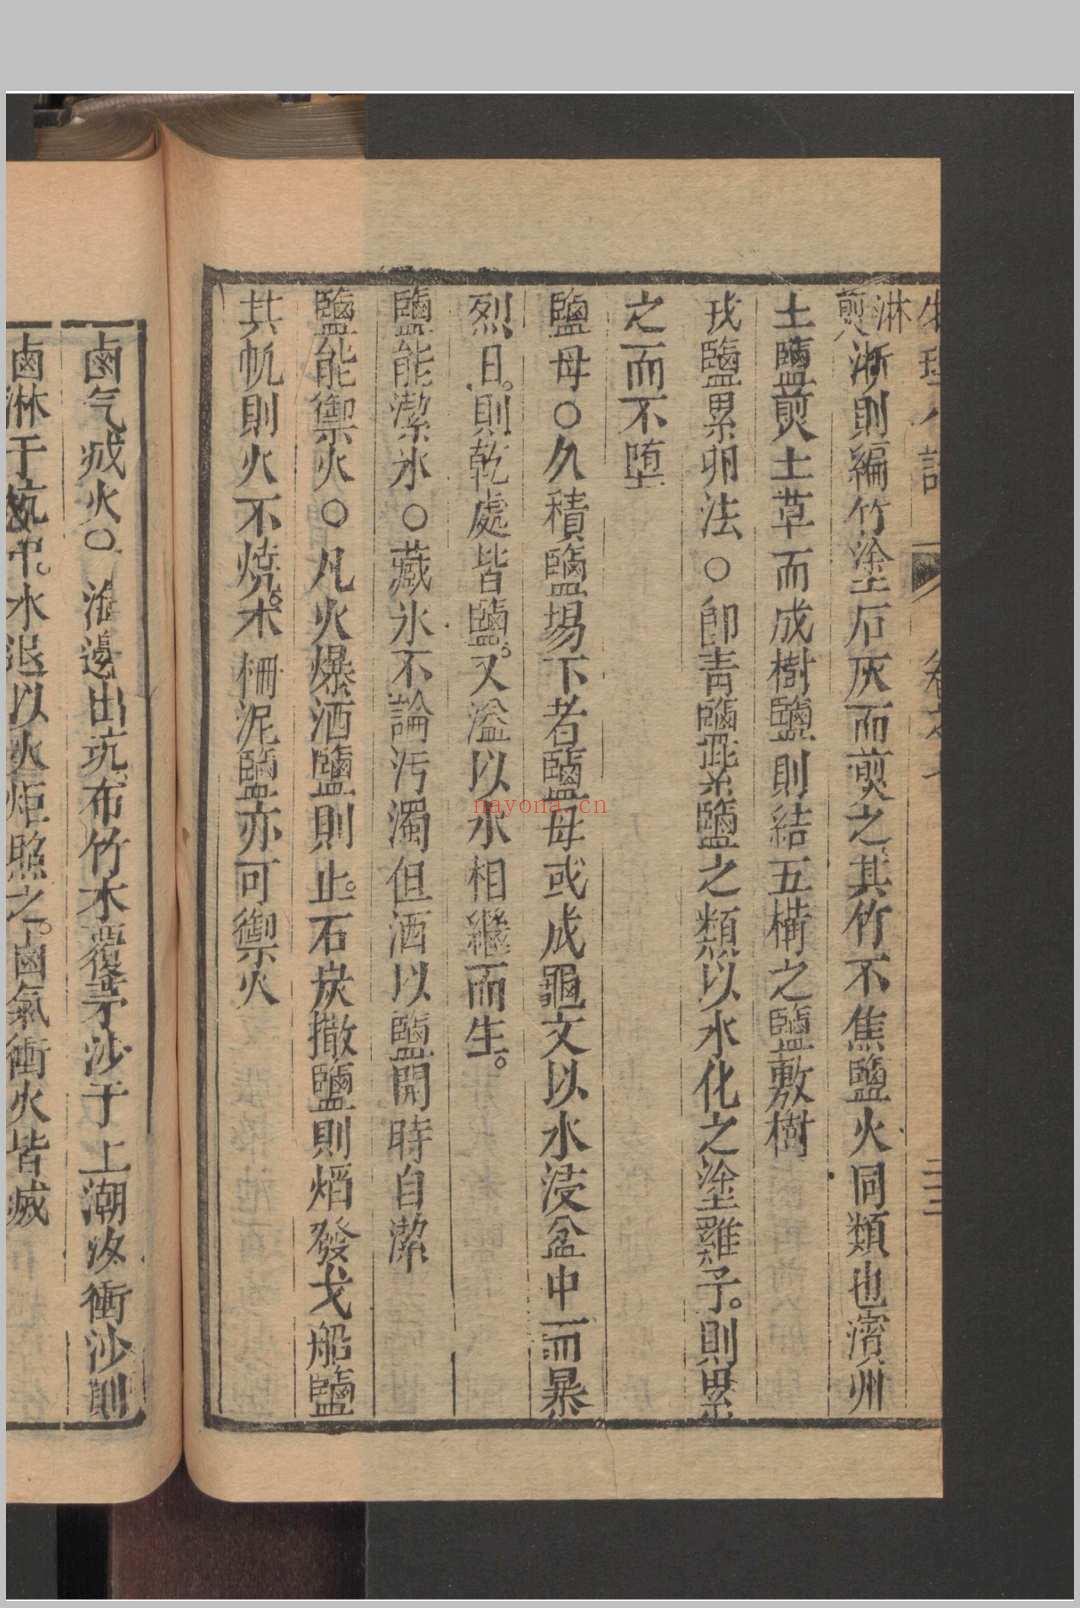 物理小識 卷之七 二三
淋煎浙則編竹塗石灰而煎之其竹不焦鹽火同類也濱州
土鹽煎土草而成樹鹽則結五構之鹽敷樹
戎鹽累卵法○即青鹽泥累鹽之類以水化之塗雞子。則累
之而不墮
鹽母○久積鹽場下者鹽母或成龜文以水浸盆中而暴
烈日。則乾處皆鹽。又溢以水相繼而生。
鹽能潔氷○藏氷不論汚濁但洒以鹽開時自潔
鹽能禦火○凡火爆洒鹽則止。石炭撒鹽則熖發戈船鹽
其帆則火不燒。木柵泥鹽亦可禦火
鹵气烕火○海邊出坑布竹木覆茅沙于上潮汐衝沙則
鹵淋于坑中。水退以火炬照之。鹵氣衝火皆滅
nayona.cn